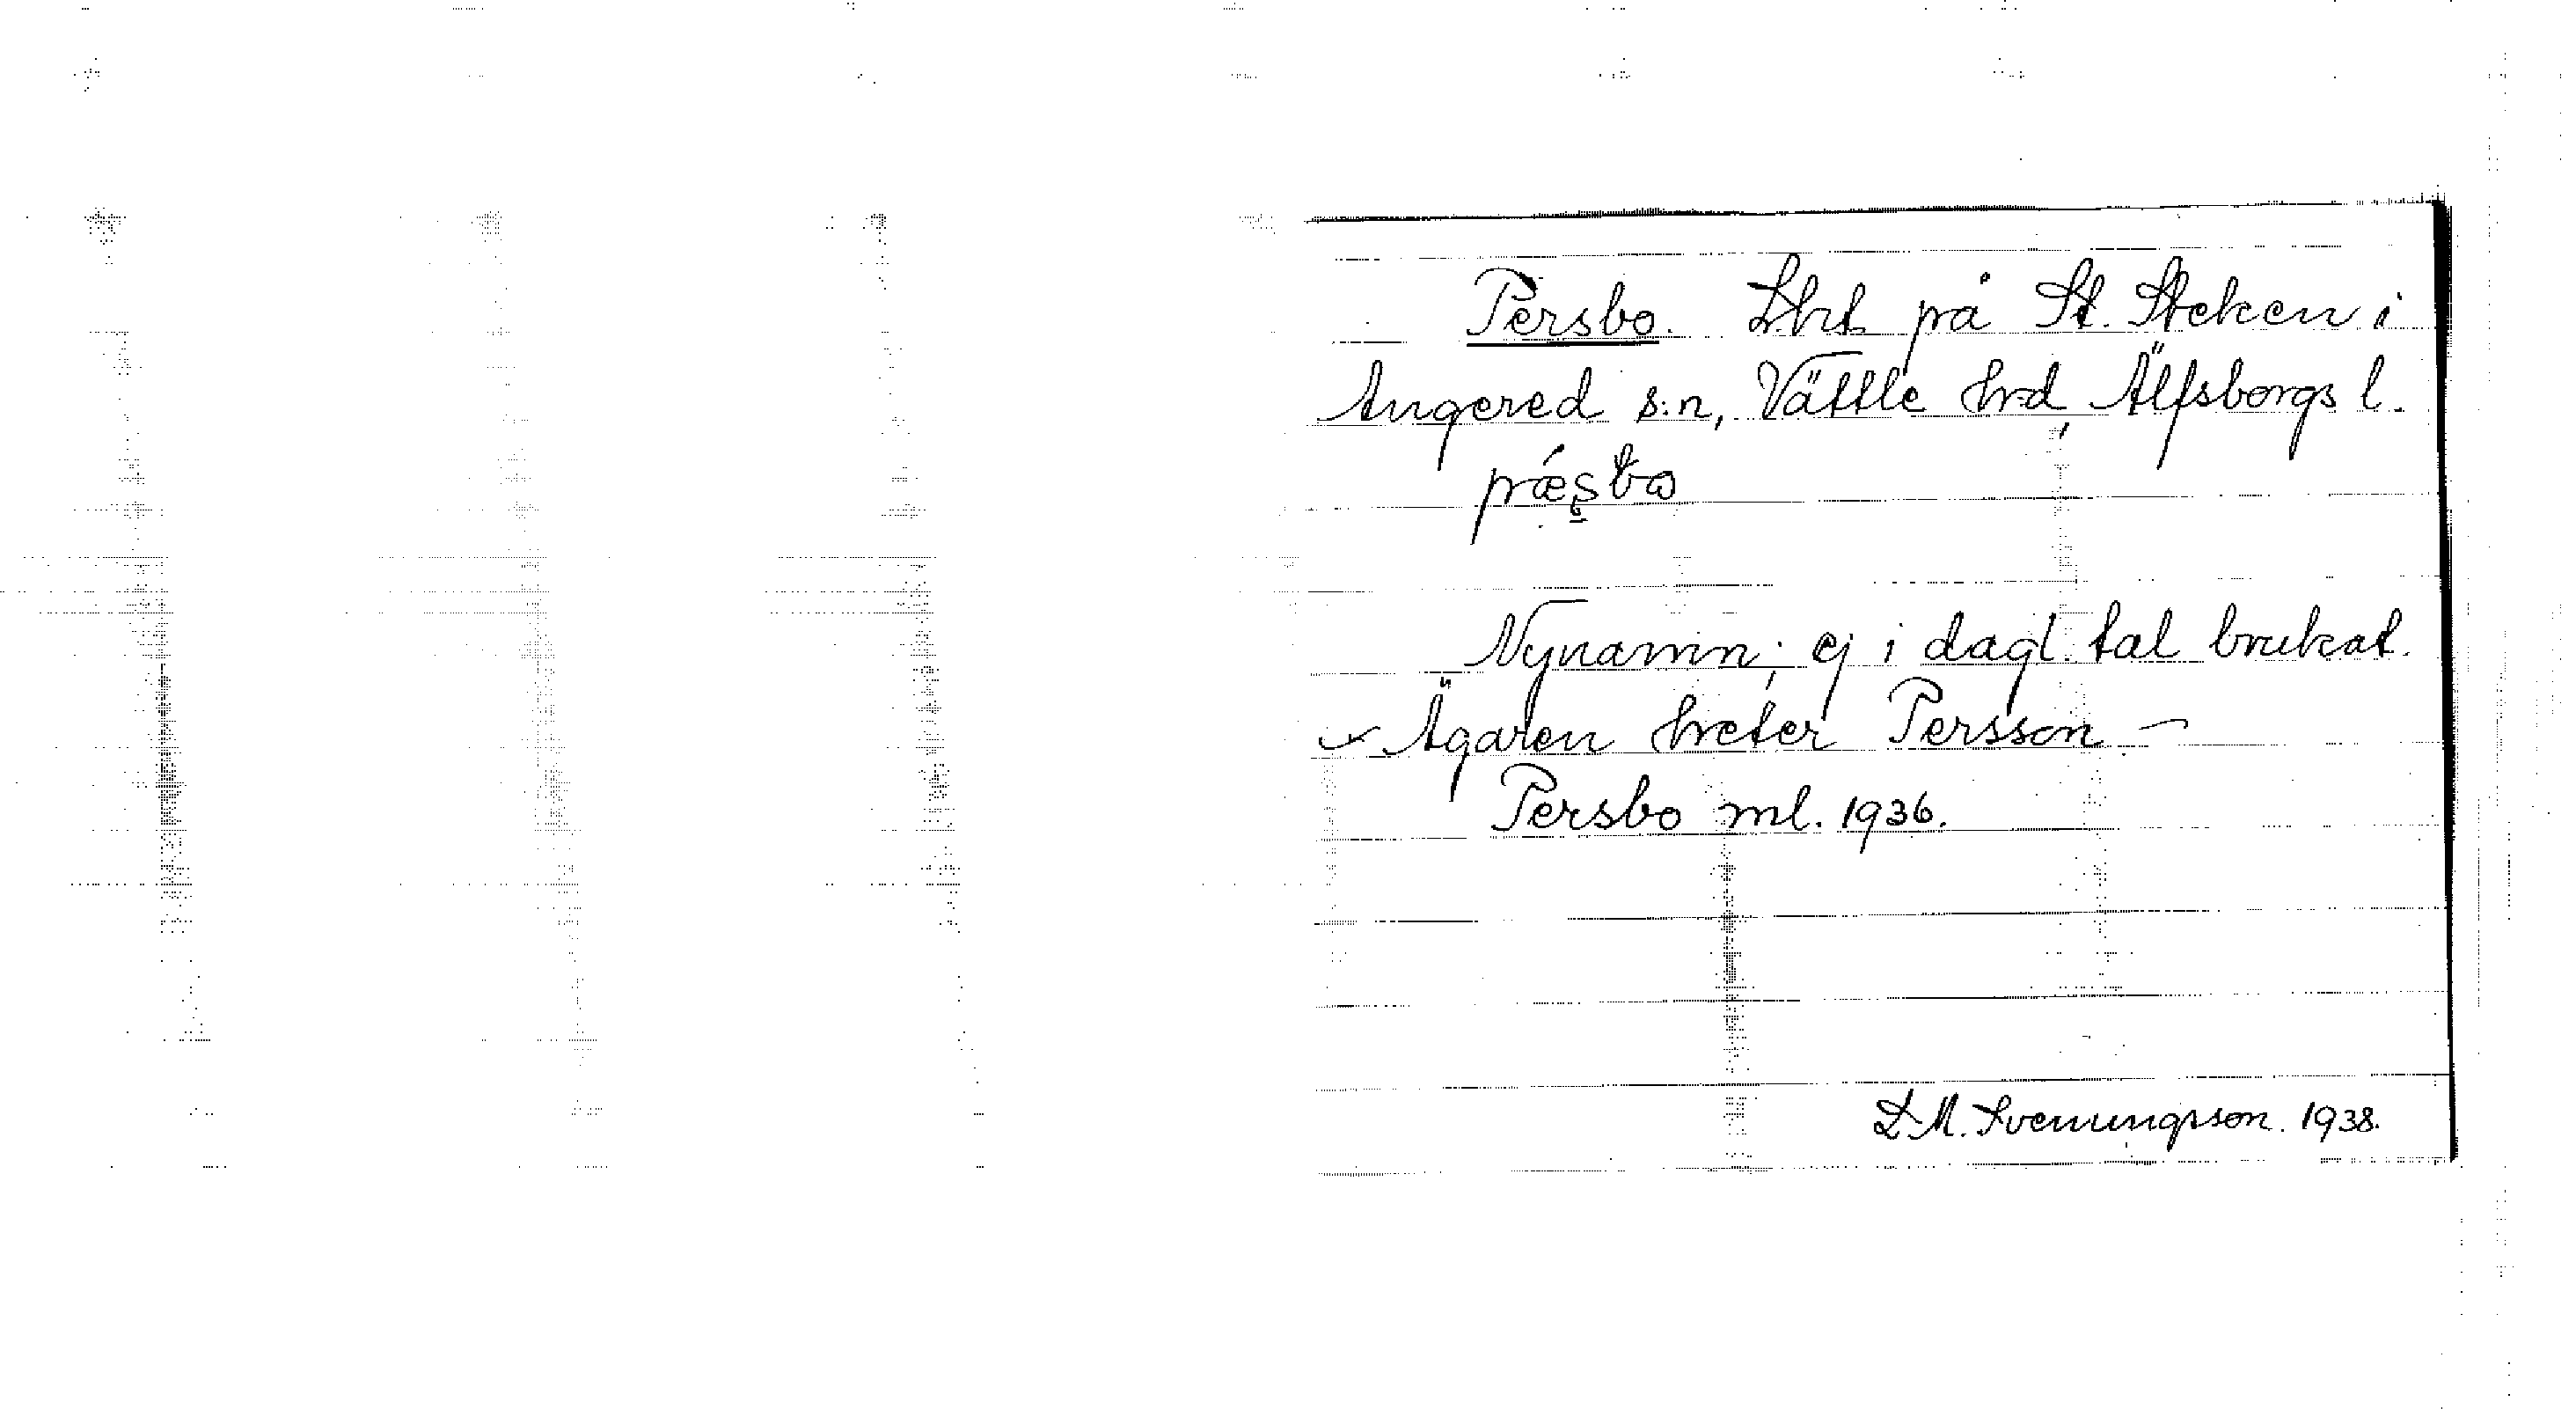 Persbo. Lht på St. Steken i
Angered s:n, Vättle hd, Älfsborgs l.
Nynamn; ej i dagl. tal brukat.
Ägaren heter Persson –
Persbo ml. 1936.
L. M. Svenungsson. 1938.